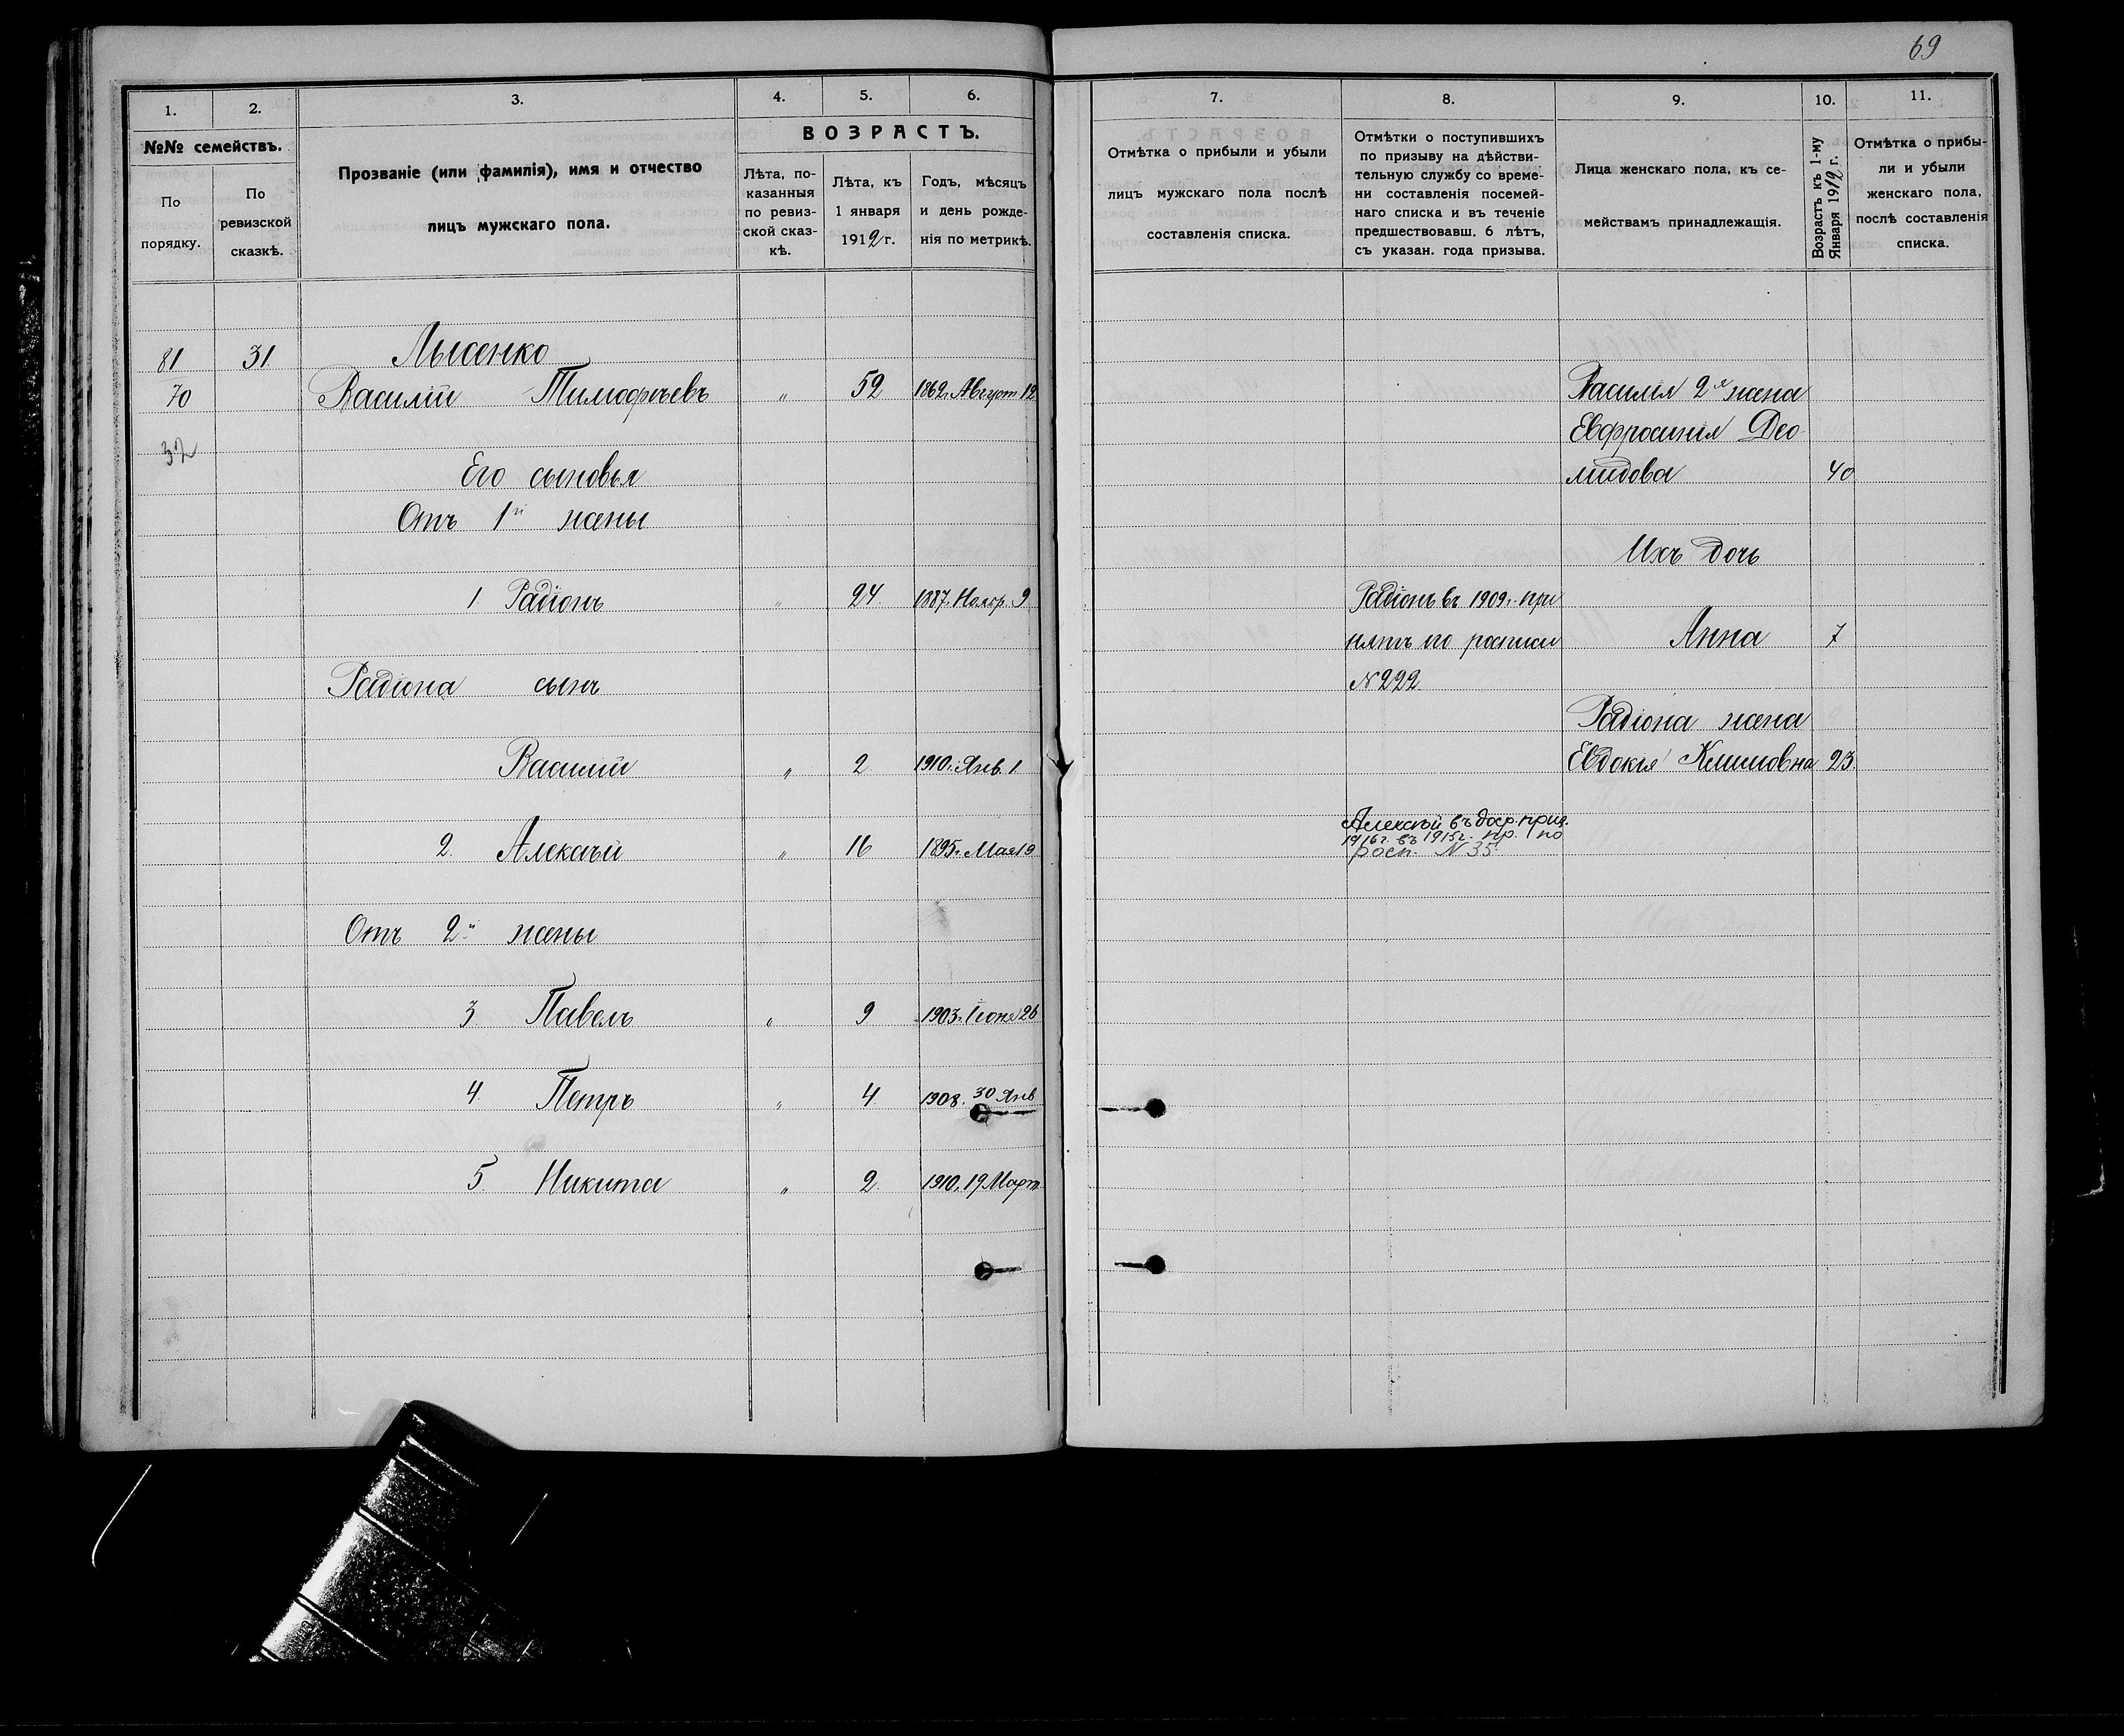 69
1.
2.
3.
4.
5.
6.
№№ семействъ.
По
порядку.
По
ревизской
сказкѣ.
Прозваніе (или фамилія), имя и отчество
лицъ мужскаго пола.
ВОЗРАСТЪ.
Лѣта, по-
казанныя
по ревиз-
ской сказ-
кѣ.
Лѣта, къ
1 января
1912 г.
Годъ, мѣсяцъ
и день рожде-
нія по метрикѣ.
81 31. Лысенко
70 Василій Тимофѣевъ " 52 1862. Август 12
32
Его сыновья
Отъ 1й жены
1. Радіонъ " 24. 1887. Ноябр. 9
Радіона сынъ
Василій " 2 1910. Янв. 1
2. Алексѣй " 16 1895г. Мая 19
Отъ 2й жены
3. Павелъ " 9 1903г. Іюня 26
4. Петръ " 4 1908. 30 Янв
5. Никита " 2. 1910. 19 Март.
7.
8.
9.
10.
11.
Отмѣтка о прибыли и убыли
лицъ мужскаго пола послѣ
составленія списка.
Отмѣтки о поступившихъ
по призыву на дѣйстви-
тельную службу со време-
ни составленія посемей-
наго списка и въ теченіе
предшествовавш. 6 лѣтъ,
съ указан. года призыва.
Лица женскаго пола, къ се-
мействамъ принадлежащія.
Возрастъ къ 1-му
Января 1912 г.
Отмѣтка о прибы-
ли и убыли
женскаго пола,
послѣ составленія
списка.
Василія 2я жена
Евфросинія Део-
мидова 40
Ихъ дочь
Радіонъ въ 1909г. при
нятъ по росписи Анна 7
№ 222
Радіона жена
Евдокія Климовна 23.
Алексѣй въ доср. приз.
1916г. въ 1915г. пр. по
росп. № 35